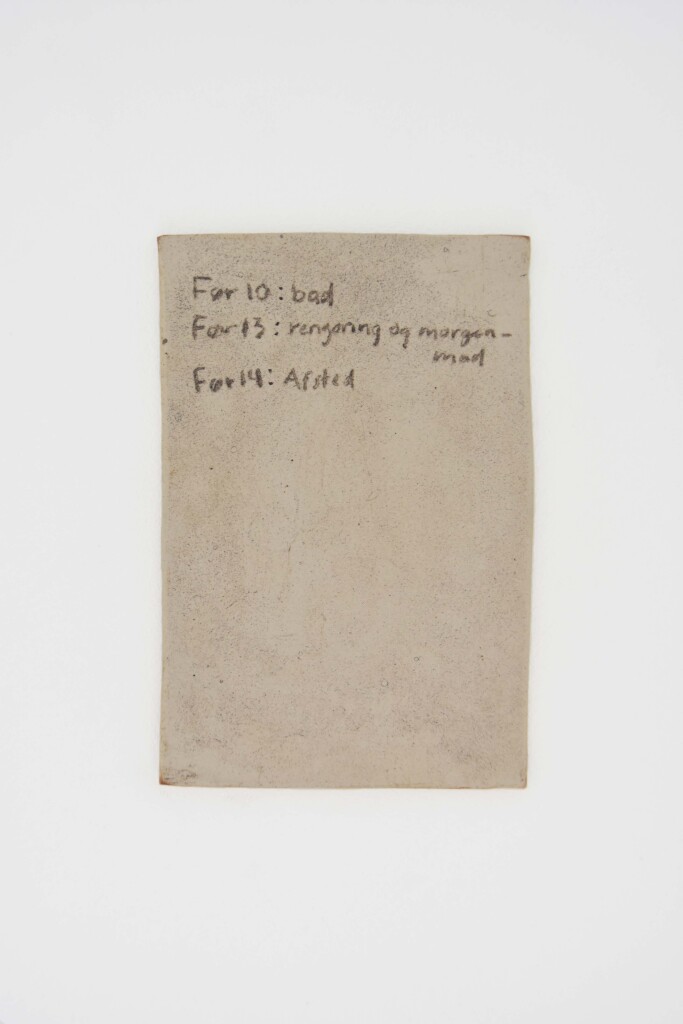 Før 10: bad
Før 13: rengøring og morgen-
mad
Før 14: Afsted